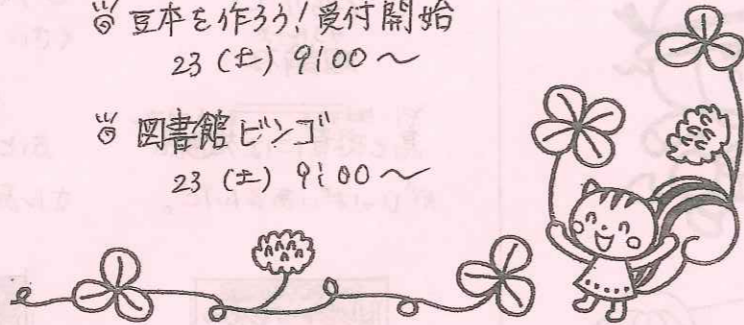 豆本を作ろう!受付開始
23(土) 9:00~
図書館ビンゴ
23(土) 9:00~